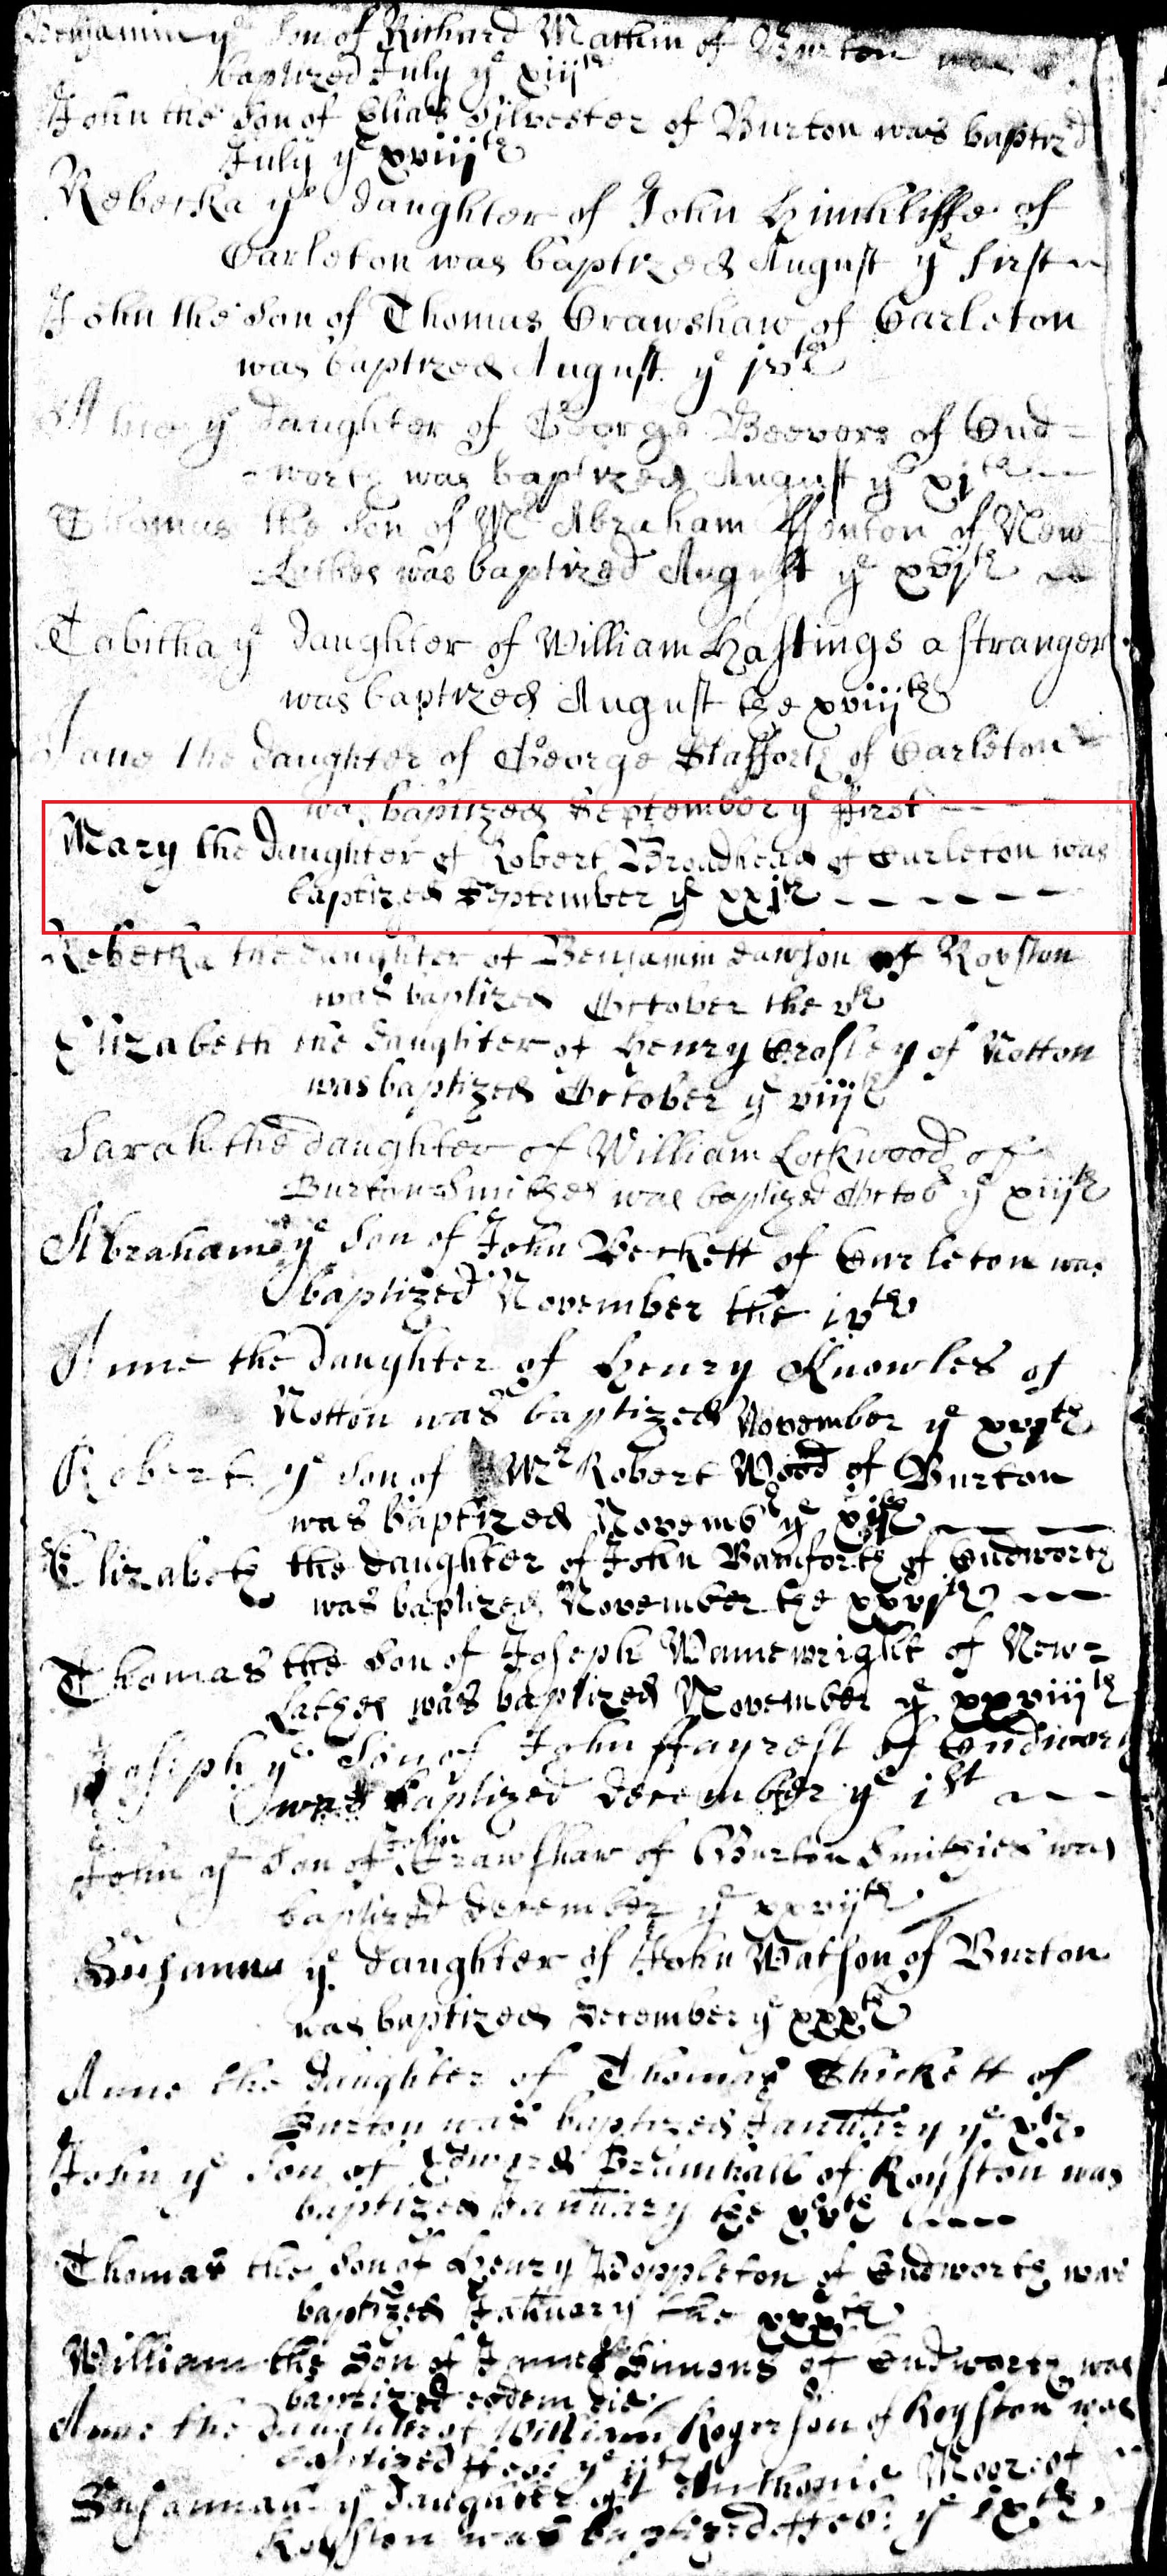 Benjamin yᵉ Son of Richard Mathin of Burton was
baptized July yᵉ xiijᵗʰ
John the Son of Elias Silvester of Burton was baptizd
July yᵉ xviijᵗʰ
Rebecka yᵉ daughter of John Hinchliffe of
Carleton was baptized August yᵉ first
John the Son of Thomas Crawshaw of Carleton
was baptized August yᵉ ivᵗʰ
yᵉ daughter of George Beevers of Cud=
=worth was baptized August yᵉ xjᵗʰ
Thomas the Son of Mʳ Abraham ffenton of New=
Lathes was baptized August yᵉ xvjᵗʰ
Tabitha yᵉ daughter of William Hastings a stranger
was baptized August the xviijᵗʰ
Jane the daughter of George Stafforth of Carleton
was baptized September yᵉ ffirst
Mary the daughter of Robert Broadhead of Carleton was
baptized September yᵉ xxjᵗʰ
Rebecka the daughter of Benjamin Dawson of Royston
was baptized October the vᵗʰ
Elizabeth the daughter of Henry Crosley of Notton
was baptized October yᵉ viijᵗʰ
Sarah the daughter of William Lockwood of
Burton Smithes was baptized Octob yᵉ xiijᵗʰ
Abraham yᵉ Son of John Beckett of Carleton was
baptized November the ivᵗʰ
Anne the daughter of Henry Knowles of
Notton was baptized November yᵉ xvjᵗʰ
Robert yᵉ Son of Mʳ Robert Wood of Burton
was baptized Novembʳ yᵉ
Elizabeth the daughter of John Bamforth of Cudworth
was baptized November the xxvjᵗʰ
Thomas the Son of Joseph Wainewright of New=
Lathes was baptized November yᵉ xxviijᵗʰ
Joseph yᵉ Son of John ffayrest of Cudworth
was baptized December yᵉ iˢᵗ
John yᵉ Son of John Crawshaw of Burton Smithies was
baptized December yᵉ xxvijᵗʰ
Susanna yᵉ daughter of John Watson of Burton
was baptized December yᵉ xxxᵗʰ
Anne the daughter of Thomas Thickett of
Burton was baptized January yᵉ vᵗʰ
John yᵉ Son of Edward Brumhall of Royston was
baptized January the xvᵗʰ
Thomas the Son of Henry Poppleton of Cudworth was
baptized January the xxxᵗʰ
William the Son of James Simons of Cudworth was
baptized eodem die
Anne the daughter of William Rogerson of Royston was
baptized ffeb: yᵉ ijᵗʰ
Susannah yᵉ daughter of Anthonie Moore of
Royston was baptized ffeb: yᵉ ixᵗʰ